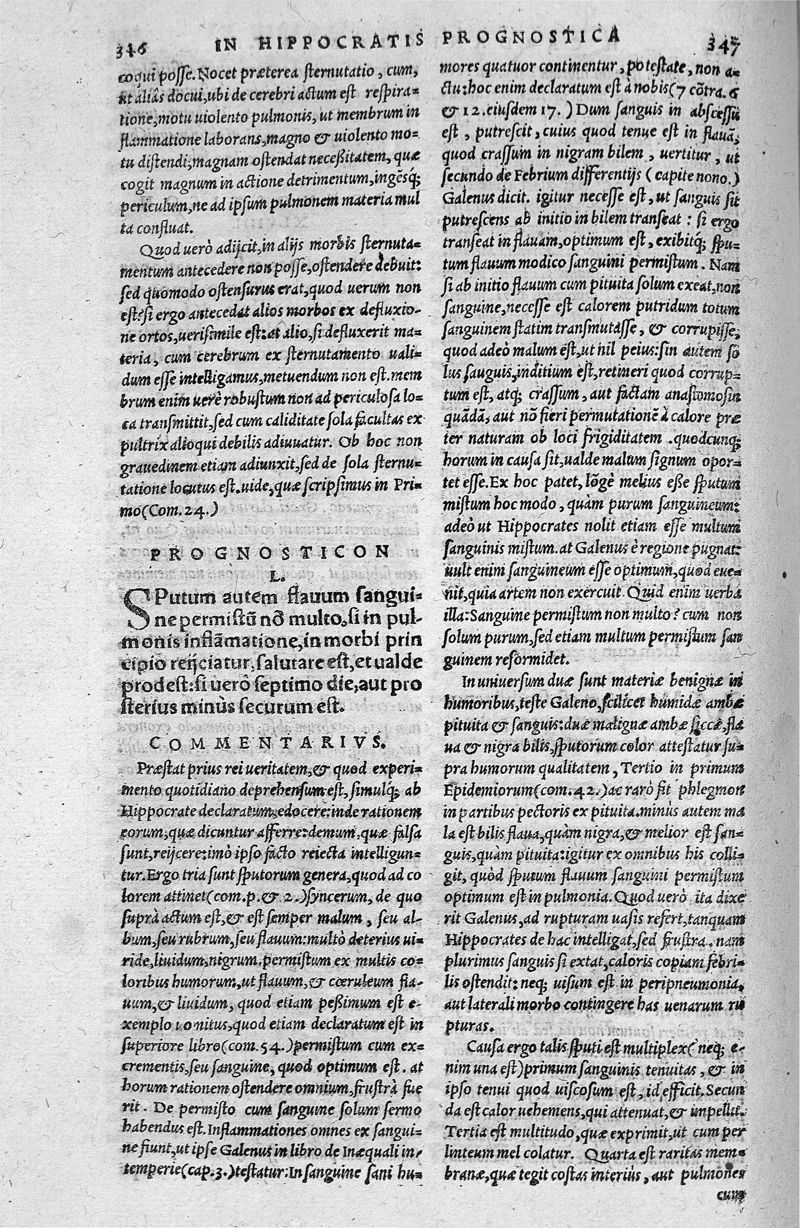 346 IN HIPPOCRATIS PROGNOSTICA 347
coqui posse. Nocet præterea sternutatio, cum,
ut aliâs docui, ubi de cerebri actum est respira=
tione, motu uiolento pulmonis, ut membrum in
flammatione laborans, magno & uiolento mo=
tu distendi, magnam ostendat neceßitatem, quæ
cogit magnum in actione detrimentum, ingēsq;
periculum, ne ad ipsum pulmonem materia mul
ta confluat.
Quod uerò adijcit, in alijs morbis sternuta=
mentum antecedere non posse, ostendere debuit:
sed quomodo ostensurus erat, quod uerum non
est? si ergo antecedat alios morbos ex defluxio=
ne ortos, uerisimile est: at alio, si defluxerit ma=
teria, cum cerebrum ex sternutamento uali=
dum esse intelligamus, metuendum non est. mem
brum enim uerè robustum non ad periculosa lo=
ca transmittit, sed cum caliditate sola facultas ex
pultrix alioqui debilis adiuuatur. Ob hoc non
grauedinem etiam adiunxit, sed de sola sternu=
tatione locutus est. uide, quæ scripsimus in Pri=
mo (Com. 24.)
PROGNOSTICON
L.
SPutum autem flauum sangui=
ne permistū nō multo, si in pul=
monis inflāmatione, in morbi prin
cipio reijciatur, salutare est, et ualde
prodest: si uerò septimo die, aut pro
sterius minus securum est.
COMMENTARIVS.
Præstat prius rei ueritatem, & quod experi=
mento quotidiano deprehensum est, simulq; ab
Hippocrate declaratum, edocere: inde rationem
eorum, quæ dicuntur afferre: demum, quæ falsa
sunt, reijcere: imò ipso facto reiecta intelligun=
tur. Ergo tria sunt sputorum genera, quod ad co
lorem attinet (com. p. & 2.) syncerum, de quo
suprà actum est, & est semper malum, seu al=
bum, seu rubrum, seu flauum: multò deterius ui=
ride, liuidum, nigrum. permistum ex multis co=
loribus humorum, ut flauum, & cœruleum fla=
uum, & liuidum, quod etiam peßimum est e=
xemplo uomitus, quod etiam declaratum est in
superiore libro (com. 54.) permistum cum ex=
crementis, seu sanguine, quod optimum est. at
horum rationem ostendere omnium, frustrà fue
rit. De permisto cum sanguine solum sermo
habendus est. Inflammationes omnes ex sangui=
ne fiunt, ut ipse Galenus in libro de Inæquali in=
temperie (cap. 3.) testatur: In sanguine sani hu=
mores quatuor continentur, potestate, non a=
ctu: hoc enim declaratum est à nobis (7 cōtra. 6
& 12. eiusdem 17.) Dum sanguis in abscessū
est, putrescit, cuius quod tenue est in flauā,
quod crassum in nigram bilem, uertitur, ut
secundo de Febrium differentijs (capite nono.)
Galenus dicit. igitur necesse est, ut sanguis sit
putrescens ab initio in bilem transeat: si ergo
transeat in flauam, optimum est, exibitq; spu=
tum flauum modico sanguini permistum. Nam
si ab initio flauum cum pituita solum exeat, non
sanguine, necesse est calorem putridum totum
sanguinem statim transmutasse, & corrupisse,
quod adeò malum est, ut nil peius: sin autem so
lus sauguis, inditium est, retineri quod corrup=
tum est, atq; crassum, aut factam anastomosin
quādā, aut nō fieri permutationē à calore præ
ter naturam ob loci frigiditatem. quodcunq;
horum in causa sit, ualde malum signum opor=
tet esse. Ex hoc patet, lōgè melius esse sputum
mistum hoc modo, quàm purum sanguineum:
adeò ut Hippocrates nolit etiam esse multum
sanguinis mistum. at Galenus è regione pugnat:
uult enim sanguineum esse optimum, quod eue=
nit, quia artem non exercuit. Quid enim uerba
illa: Sanguine permistum non multo? cum non
solum purum, sed etiam multum permistum san
guinem reformidet.
In uniuersum duæ sunt materiæ benignæ in
humoribus, teste Galeno, scilicet humidæ ambæ
pituita & sanguis: duæ malignæ ambæ siccæ, fla
ua & nigra bilis, sputorum color attestatur su=
pra humorum qualitatem, Tertio in primum
Epidemiorum (com. 42.) ac rarò fit phlegmon
in partibus pectoris ex pituita. minùs autem ma
la est bilis flaua, quàm nigra, & melior est san=
guis, quàm pituita: igitur ex omnibus his colli=
git, quòd sputum flauum sanguini permistum
optimum est in pulmonia. Quod uerò ita dixe
rit Galenus, ad rupturam uasis refert, tanquam
Hippocrates de hac intelligat, sed frustra. nam
plurimus sanguis si extat, caloris copiam febri=
lis ostendit: neq; uisum est in peripneumonia,
aut laterali morbo contingere has uenarum ru
pturas.
Causa ergo talis sputi est multiplex (neq; e=
nim una est) primum sanguinis tenuitas, & in
ipso tenui quod uiscosum est, id efficit. Secun
da est calor uehemens, qui attenuat, & impellit.
Tertia est multitudo, quæ exprimit, ut cum per
linteum mel colatur. Quarta est raritas mem=
branæ, quæ tegit costas interius, aut pulmones
cum